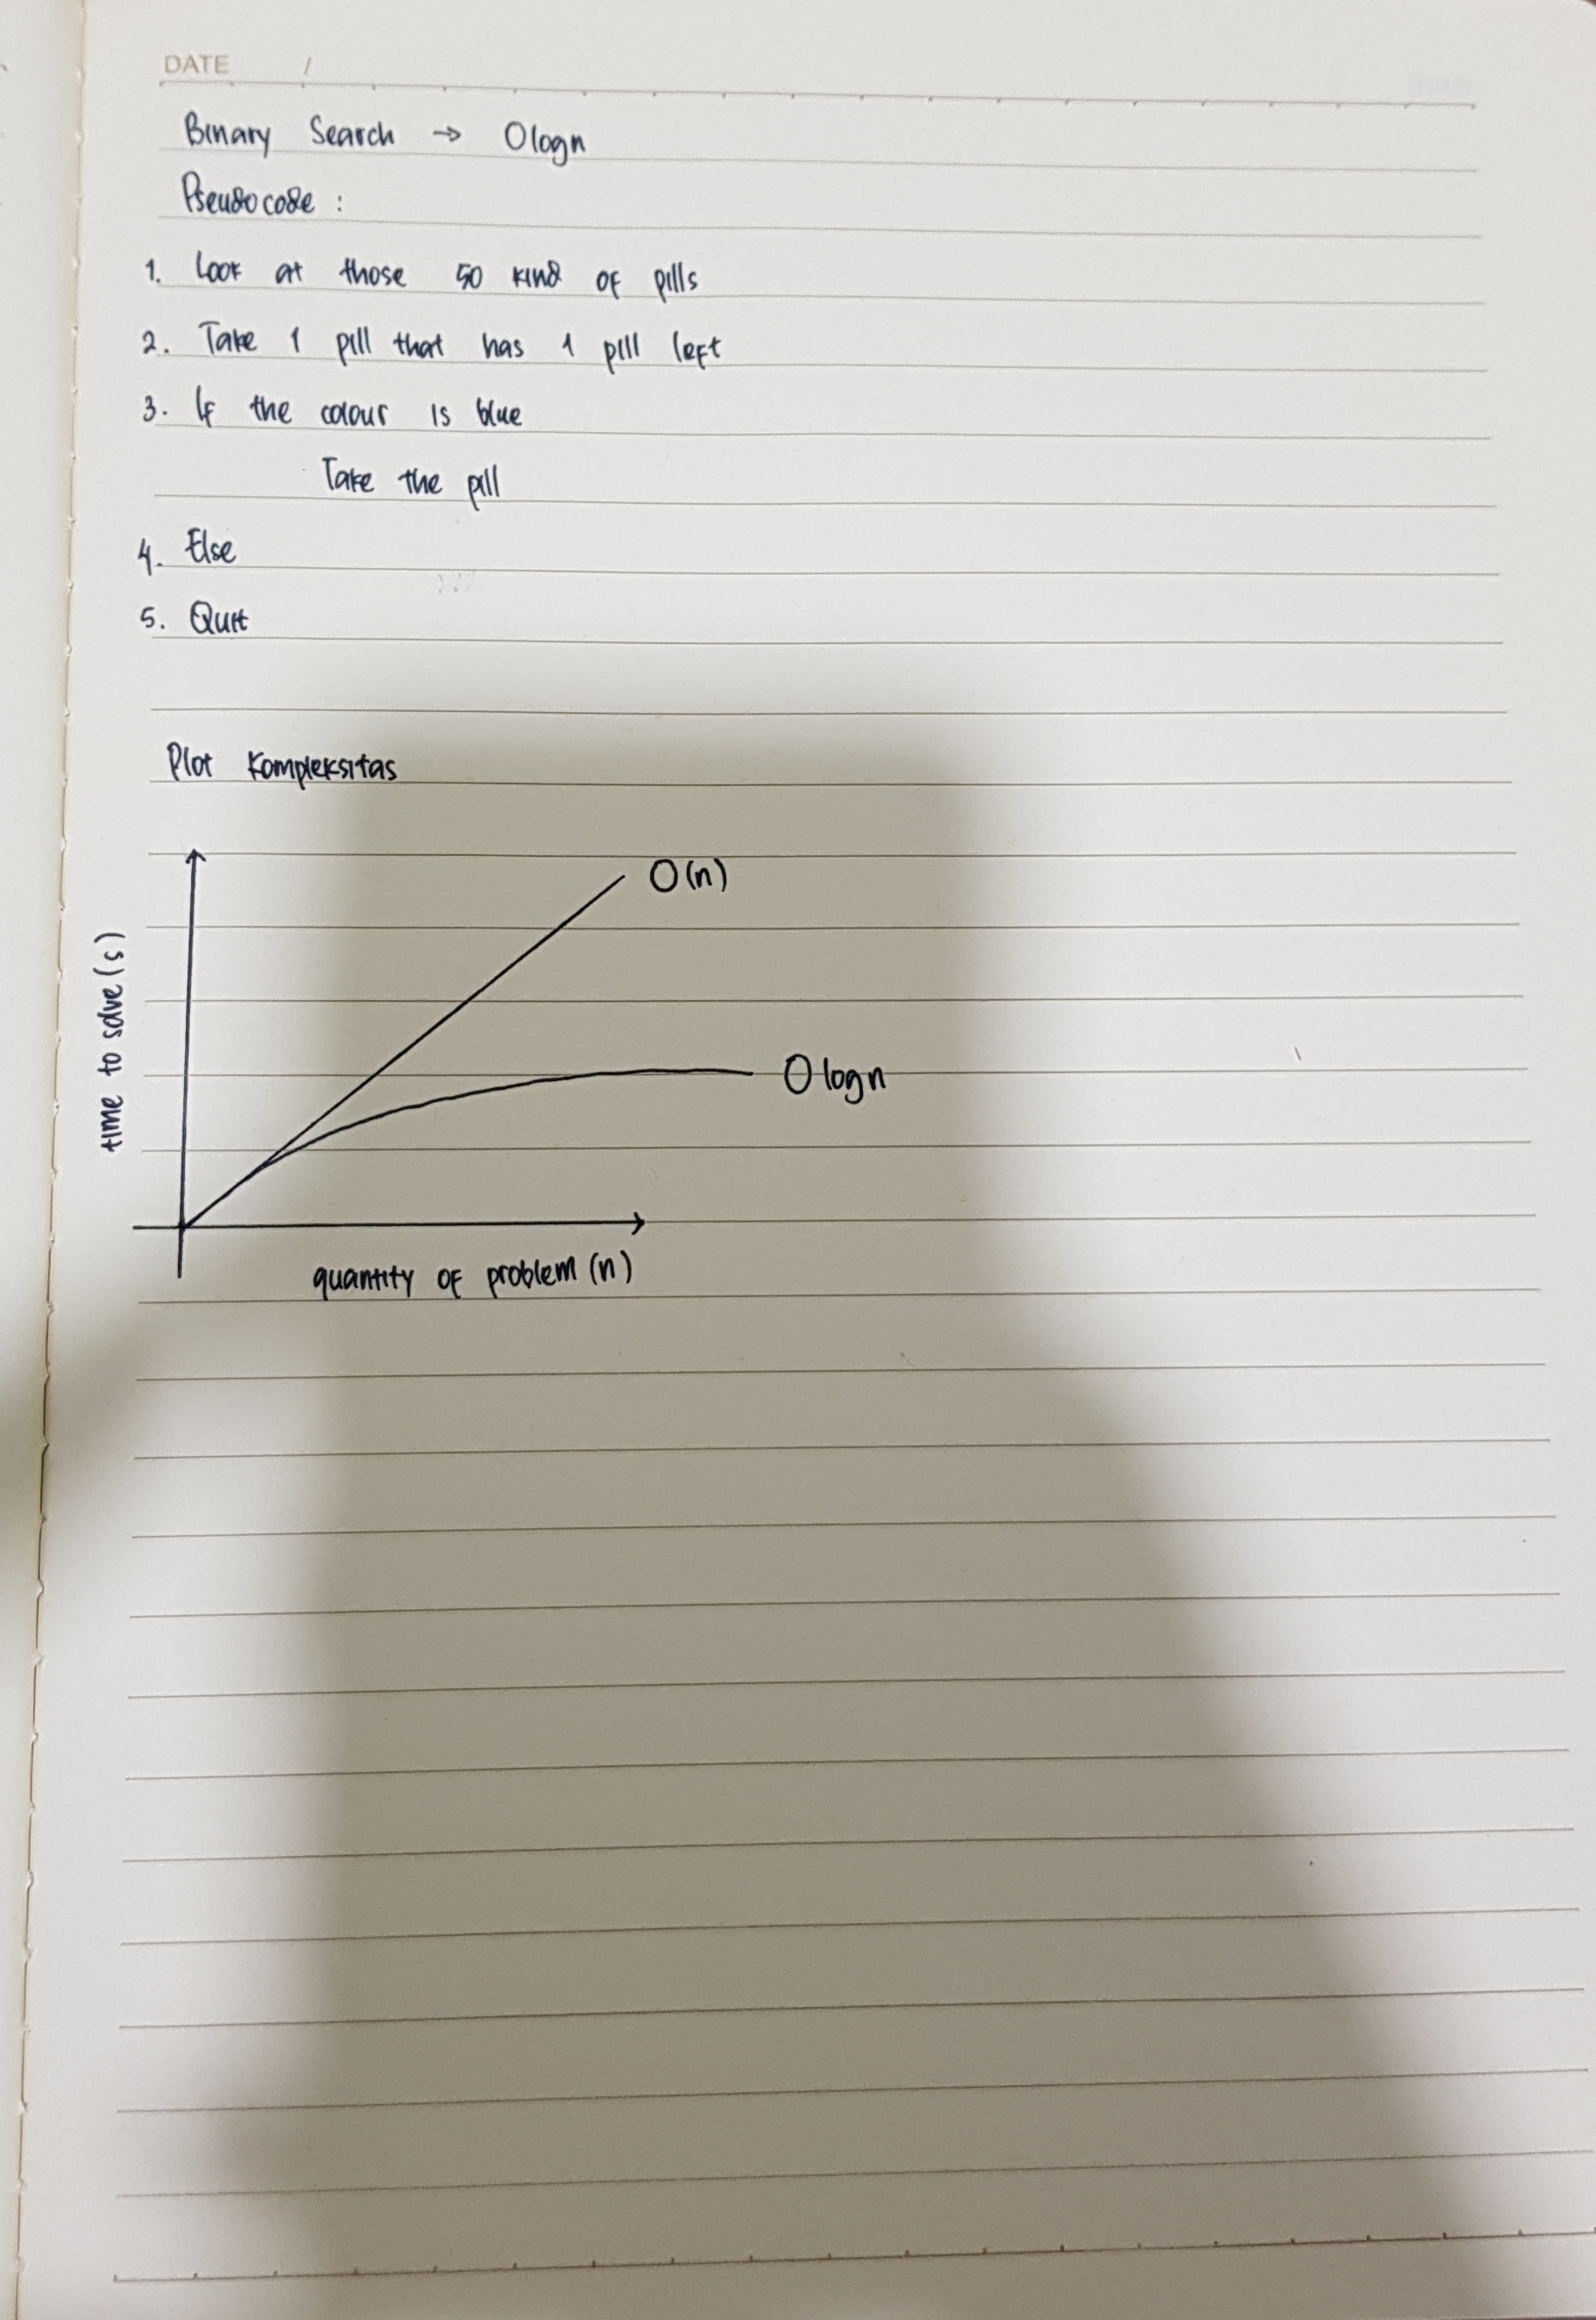 DATE /
Binary Search → Ologn
Pseudocode :
1. Look at those 50 kind of pills
2. Take 1 pill that has 1 pill left
3. If the colour is blue
Take the pill
4. Else
5. Quit
Plot Kompleksitas
O(n)
time to solve (s)
O logn
quantity of problem (n)